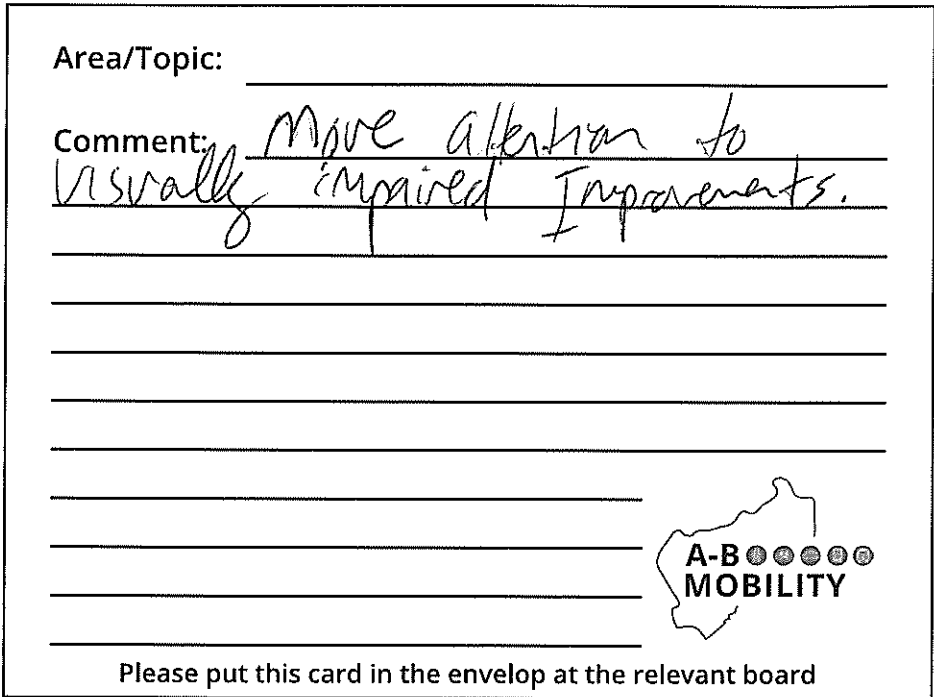 Area/Topic:
Comment: Move attention to
visually impaired Improvements.
A-B
MOBILITY
Please put this card in the envelop at the relevant board